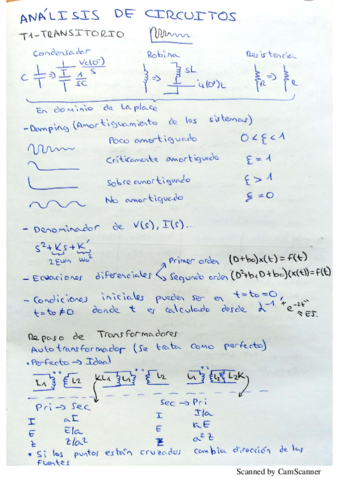 ANÁLISIS DE CIRCUITOS
T1-TRANSITORIO
Condensador Bobina Resistencia
C ⇒ Vc(0⁻)/S 1/SC ⇒ SL iL(0⁻)L R ⇒ R
En dominio de Laplace
- Damping (Amortiguamiento de los sistemas)
Poco amortiguado 0<ξ<1
Críticamente amortiguado ξ=1
Sobreamortiguado ξ>1
No amortiguado ξ=0
- Denominador de V(s), I(s)...
S²+Ks+K'
2ξωn ωo²
Primer orden (D+bo)x(t)=f(t)
- Ecuaciones diferenciales Segundo orden (D²+b₁D+bo)(x(t))=f(t)
- Condiciones iniciales pueden ser en t=to=0,
t=to≠0 donde t es calculado desde
Repaso de Transformadores
Autotransformador (Se trata como perfecto)
• Perfecto → Ideal
L1 L2 KL1 L1 L2
Pri → Sec Sec → Pri
I aI I I/a
E E/a E aE
Z Z/a² Z a²Z
• Si los puntos están cruzados cambia dirección de las
fuentes
Scanned by CamScanner